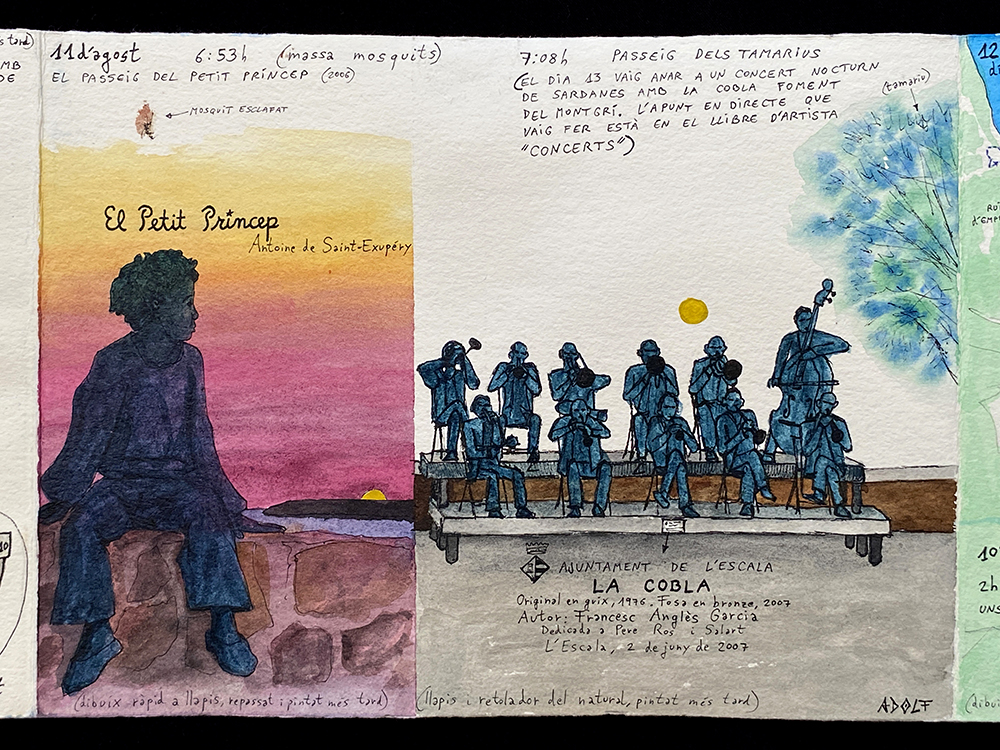 s tard)
AMB
DE
11 d'agost 6:53h (massa mosquits)
EL PASSEIG DEL PETIT PRÍNCEP (2006)
MOSQUIT ESCLAFAT
El Petit Príncep
Antoine de Saint-Exupéry
(dibuix ràpid a llapis, repassat i pintat més tard)
10
7:08h PASSEIG DELS TAMARIUS
(EL DIA 13 VAIG ANAR A UN CONCERT NOCTURN
DE SARDANES AMB LA COBLA FOMENT
DEL MONTGRÍ. L'APUNT EN DIRECTE QUE
VAIG FER ESTÀ EN EL LLIBRE D'ARTISTA
"CONCERTS")
(tamariu)
AJUNTAMENT DE L'ESCALA
LA COBLA
Original en guix, 1976. Fosa en bronze, 2007
Autor: Francesc Anglès Garcia
Dedicada a Pere Ros i Salart
L'Escala, 2 de juny de 2007
(llapis i retolador del natural, pintat més tard)
ADOLF
12
di
RU
D'EMP
10
2h
UNS
(dibui